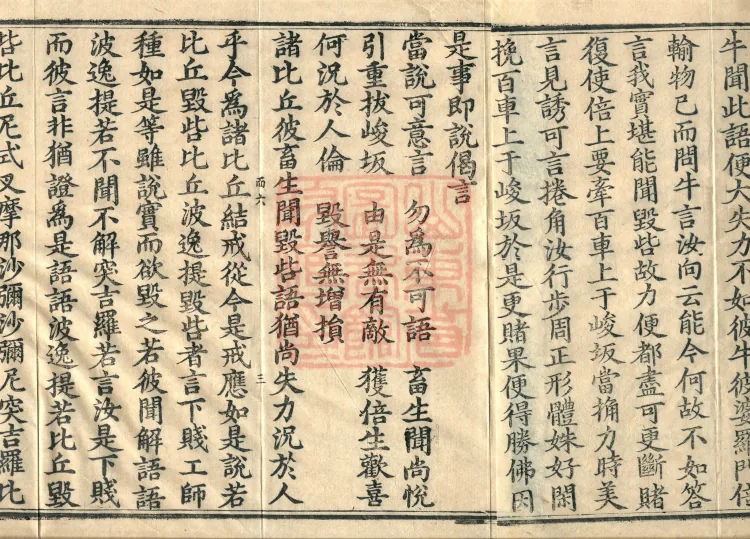 牛聞此語便大失力不如彼牛彼婆羅門倍
輸物已而問牛言汝向云能今何故不如答
言我實堪能聞毀呰故力便都盡可更斷賭
復使倍上要牽百車上于峻坂當捔力時美
言見誘可言捲角汝行步周正形體姝好閑
挽百車上于峻坂於是更賭果便得勝佛因
是事即說偈言
當說可意言 勿爲不可語 畜生聞尚悅
引重拔峻坂 由是無有敵 獲倍生歡喜
何況於人倫 毀譽無增損
諸比丘彼畜生聞毀呰語猶尚失力況於人
而六 三
乎今爲諸比丘結戒從今是戒應如是說若
比丘毀呰比丘波逸提毀呰者言下賤工師
種如是等雖說實而欲毀之若彼聞解語語
波逸提若不聞不解突吉羅若言汝是下賤
而彼言非猶證爲是語語波逸提若比丘毀
呰比丘尼式叉摩那沙彌沙彌尼突吉羅比